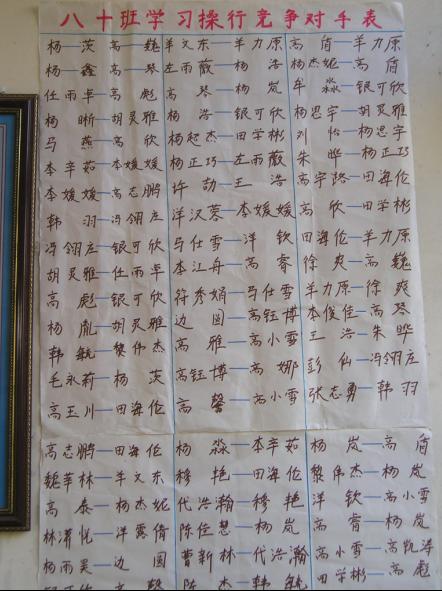 八十班学习操行竞争对手表
杨 茨—高 巍 羊文东—羊力原 高 盾—羊力原
杨 鑫—高 琴 左雨薇—杨 浩 杨杰妮—高 盾
任雨卓—高 彪 高 琴—杨 岚 牟 淼—银可欣
杨 晰—胡灵雅 杨 浩—银可欣 杨思宇—胡灵雅
马 燕—高 欣 杨起杰—田学彬 刘 怡—杨思宇
李辛茹—李媛媛 杨正巧—左雨薇 朱 晔—杨正巧
李媛媛—高志鹏 许 劼—王 浩 高宇路—田海伦
韩 羽—冯翎庄 洋汉蓉—李媛媛 高 欣—田学彬
冯翎庄—银可欣 马仕雪—洋 钦 田海伦—羊力原
胡灵雅—任雨卓 李江舟—高 睿 徐 爽—高 巍
高 彪—银可欣 符秀娟—马仕雪 羊力原—徐 爽
杨 胤—胡灵雅 边 圆—高钰博 李俊佳—高 琴
韩 毓—黎伟杰 高 雅—高小雪 王 浩—朱 晔
毛永莉—杨 茨 高钰博—高 娜 彭 仙—冯翎庄
高玉川—田海伦 高 馨—高小雪 张志勇—韩 羽
高志鹏—田海伦 杨 淼—李辛茹 杨 岚—高 盾
魏苹林—羊文东 穆 艳—田海伦 黎伟杰—杨 岚
高 泰—杨杰妮 代浩瀚—穆 艳 洋 钦—高小雪
林潇悦—洋露倩 陈佳慧—杨 岚 高 睿—杨 岚
杨雨昊—边 圆 曹新林—代浩瀚 高小雪—高凯涛
高 馨 陈 杰—韩 毓 田学彬—高 彪